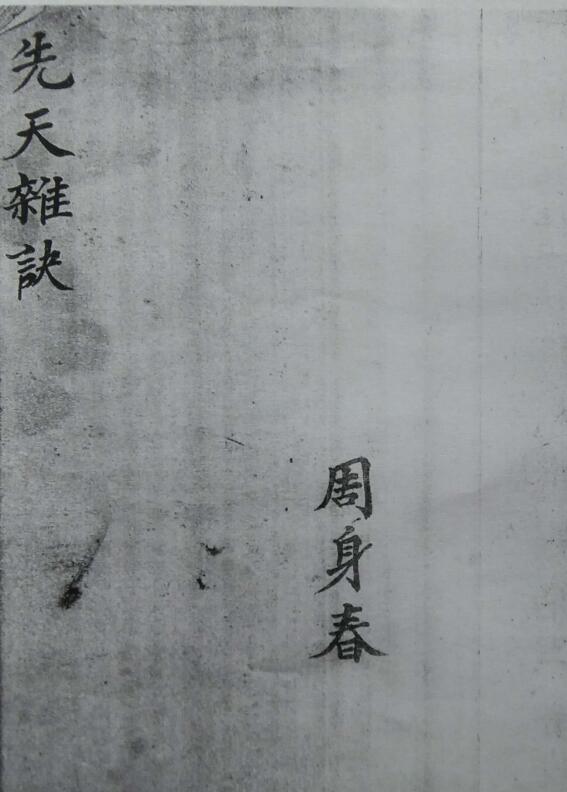 先天雜訣
周身春